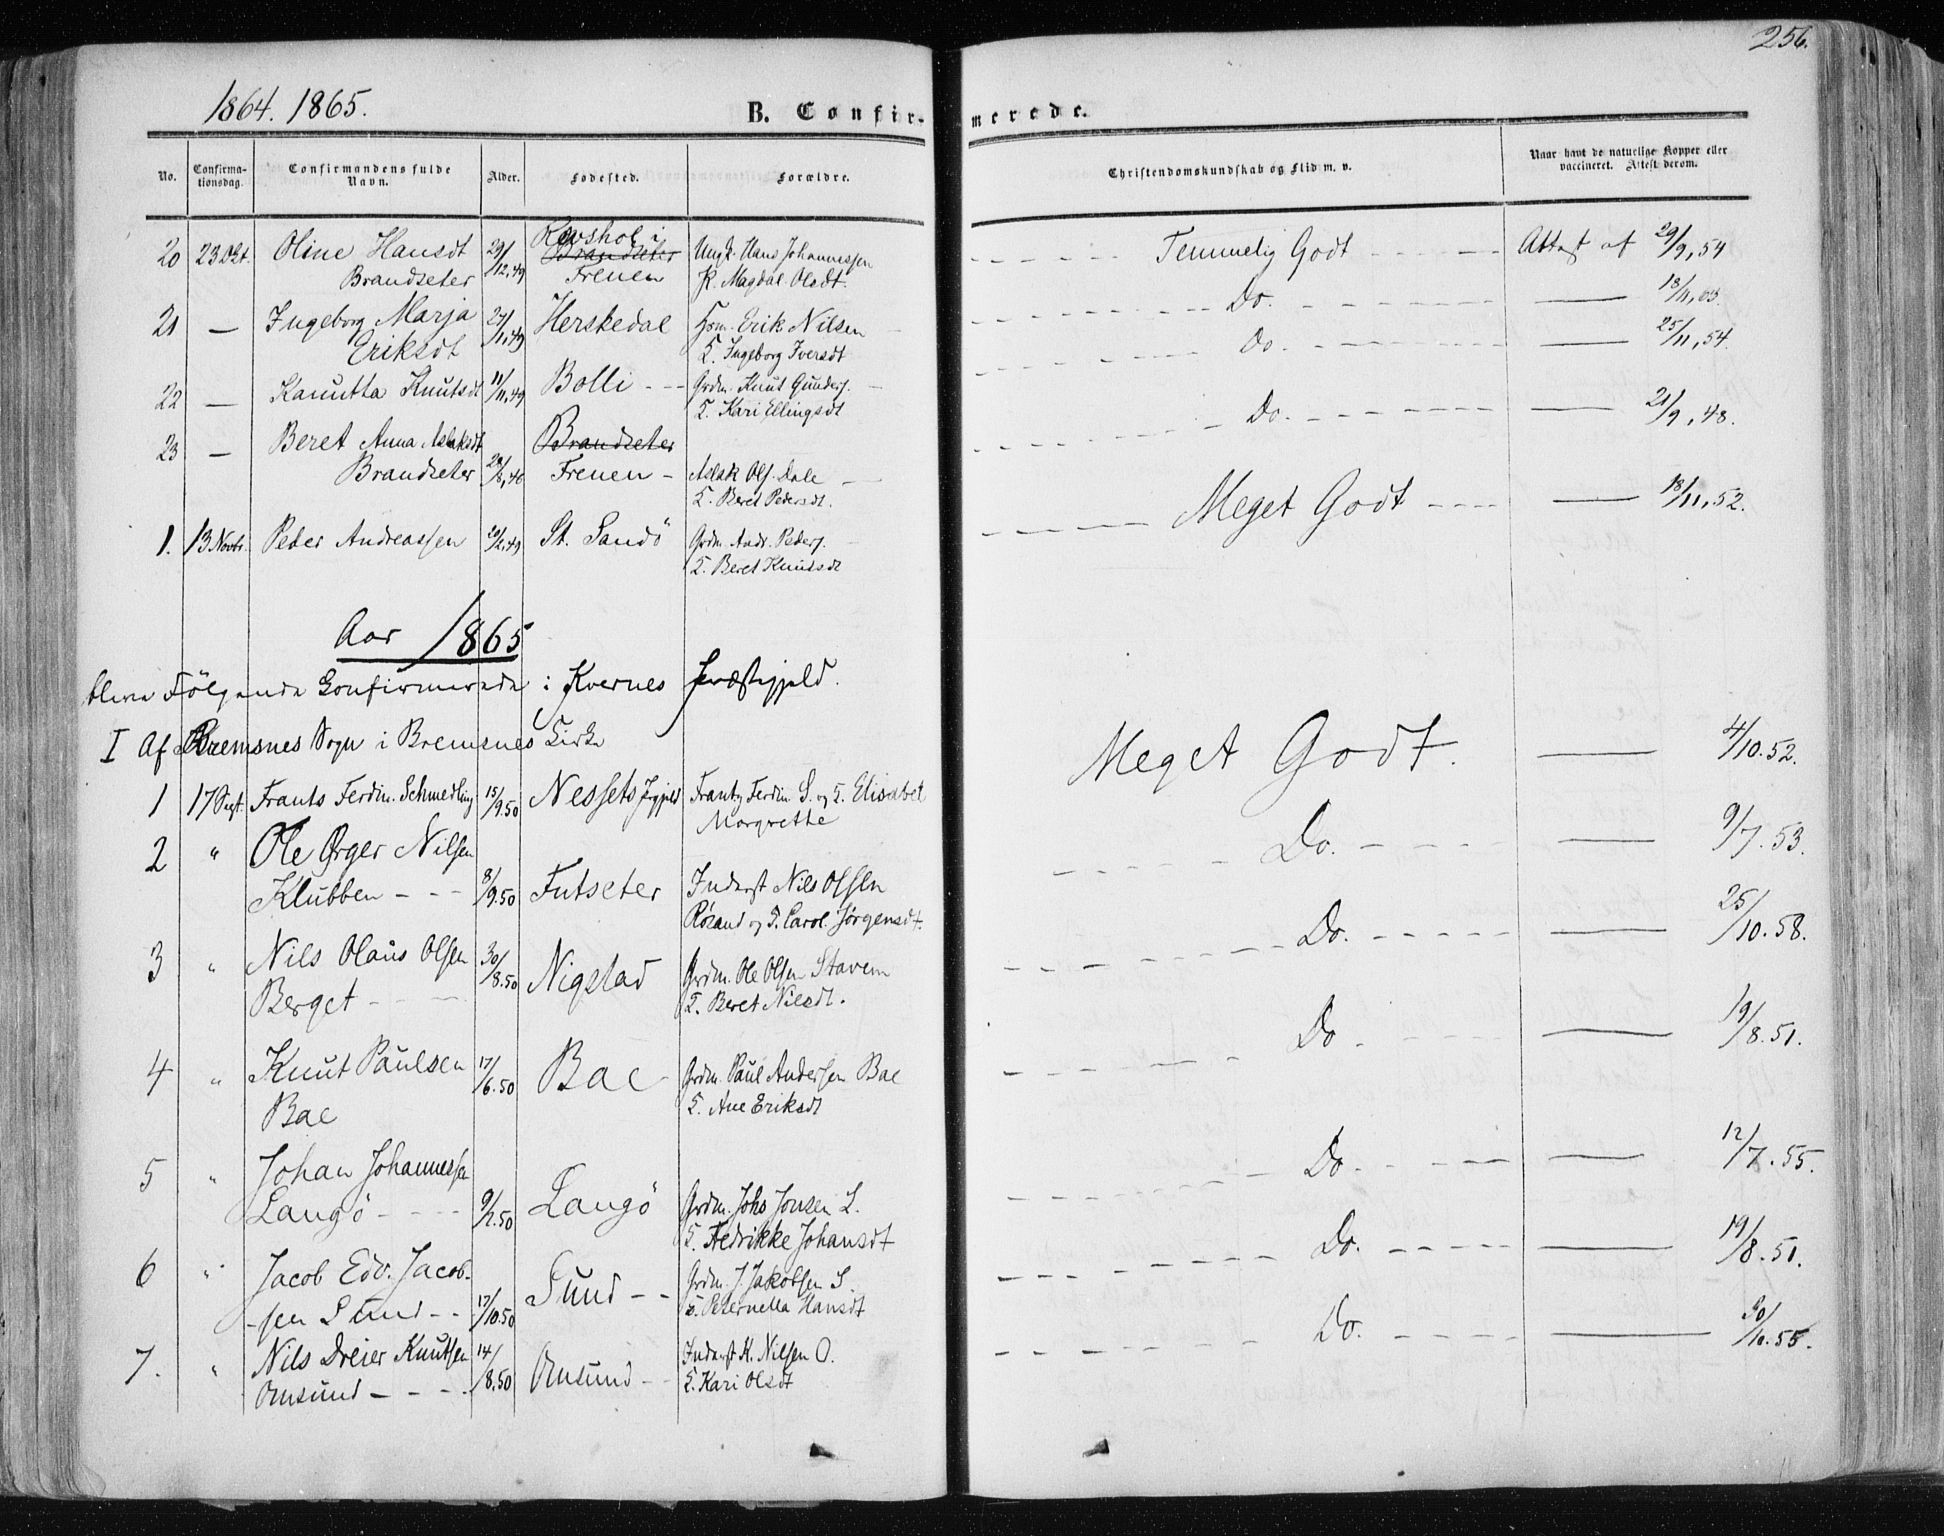 256.
1864. 1865.
B. Confir-
merede.
No.
Confirma-
tionsdag.
Confirmandens fulde
Navn.
Alder.
Fødested.
Forældre.
Christendomskundskab og Flid m. v.
Naar havt de naturlige Kopper eller
vaccineret. Attest derom.
20 23 Oct. Oline Hansdt 29/12,49 i Ungk. Hans Johannessen Temmelig Godt Attest af 29/9,54
Brandseter Brandseter
Frenen P. Magdal. Olsdt.
21 — Ingeborg Marja 27/1,49 Herskedal Hsm. Erik Nilsen Do. — 18/11,
Eriksdt K. Ingeborg Iversdt
22 — Kanutta Knutsdt 11/11,49 Bolli - - Grdm. Knut Gunders. Do. — 25/11,54.
K. Kari Ellingsdt
23 — Beret Anna Aslaksdt Brandseter Do. — 21/9,48.
Brandseter Frenen - Aslak Ols. Dale
K. Beret Pedersdt.
1. 13 Novbr. Peder Andreassen St. Sandö Grdm. Andr. Peders. Meget Godt — 18/11,52.
K. Beret Knutsdt
Aar 1865
bleve Følgende Confirmerede i Kvernes Præstegjeld.
I Af Bremsnes Sogn i Bremsnes Kirke
1 17 Sept. Frants Ferdin. Schmedling 15/9.50 Nessets Frants Ferdin S. og K. Elisabet Meget Godt. — 4/10.52.
Margrethe
2 " Ole Ørger Nilsen Do. — 9/7.53.
Klubben - - - 8/9.50 Futseter Inderst Nils Olsen
Rösand og K. Carol. Jörgensdt.
3 " Nils Olaus Olsen 30/8.50 Nigstad Grdm. Ole Olsen Stavem Do. — 25/10.58.
Berget - K. Beret Nilsdt.
4 " Knut Paulsen 17/6.50 Bae Grdm. Paul Andersen Bae Do — 19/8.51.
Bae K. Ane Eriksdt
5 " Johan Johannessen Do. — 12/7.55.
Langö - - - 9/2.50 Langö Grdm. Johs Jonsen L.
K. Fredrikke Johansdt
6 " Jacob Edv. Jacob- Sund - - Grdm. J. Jakobsen S. Do. — 19/8.51.
-sen Sund - - 17/10.50 K. Peternella Hansdt
7. " Nils Dreier Knutsen 14/8.50 Omsund - - Inderst K. Nilsen O. Do. — 30/10.55.
Omsund - - - K. Kari Olsdt